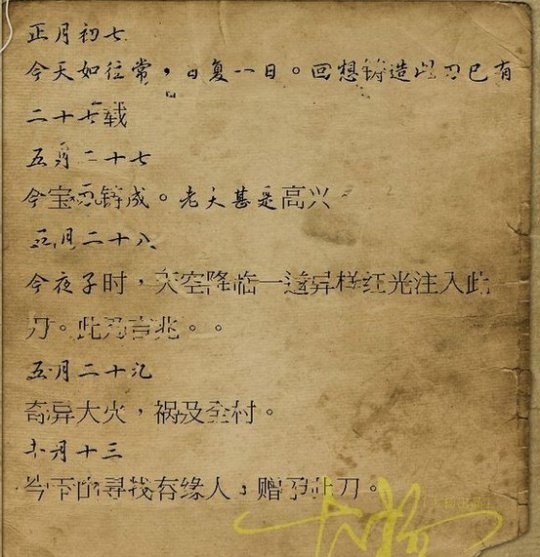 正月初七
今天如往常，日复一日。回想铸造此刀已有
二十七载
五月二十七
今宝刀铸成。老夫甚是高兴
五月二十八
今夜子时，天空降临一道异样红光注入此
刀。此乃吉兆。。
五月二十九
奇异大火，祸及全村。
十月十三
今下山寻找有缘人，赠予此刀。